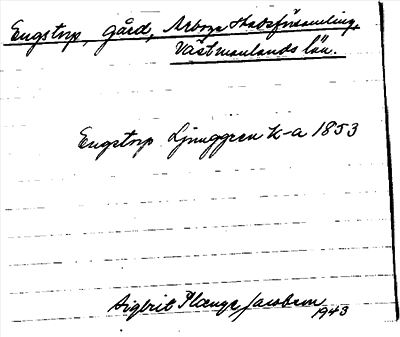 Engstorp, gård, Arboga Stadsförsamling,
Västmanlands län.
Engstorp Ljunggren K-a 1853
Sigbrit Plænge Jacobson
1943